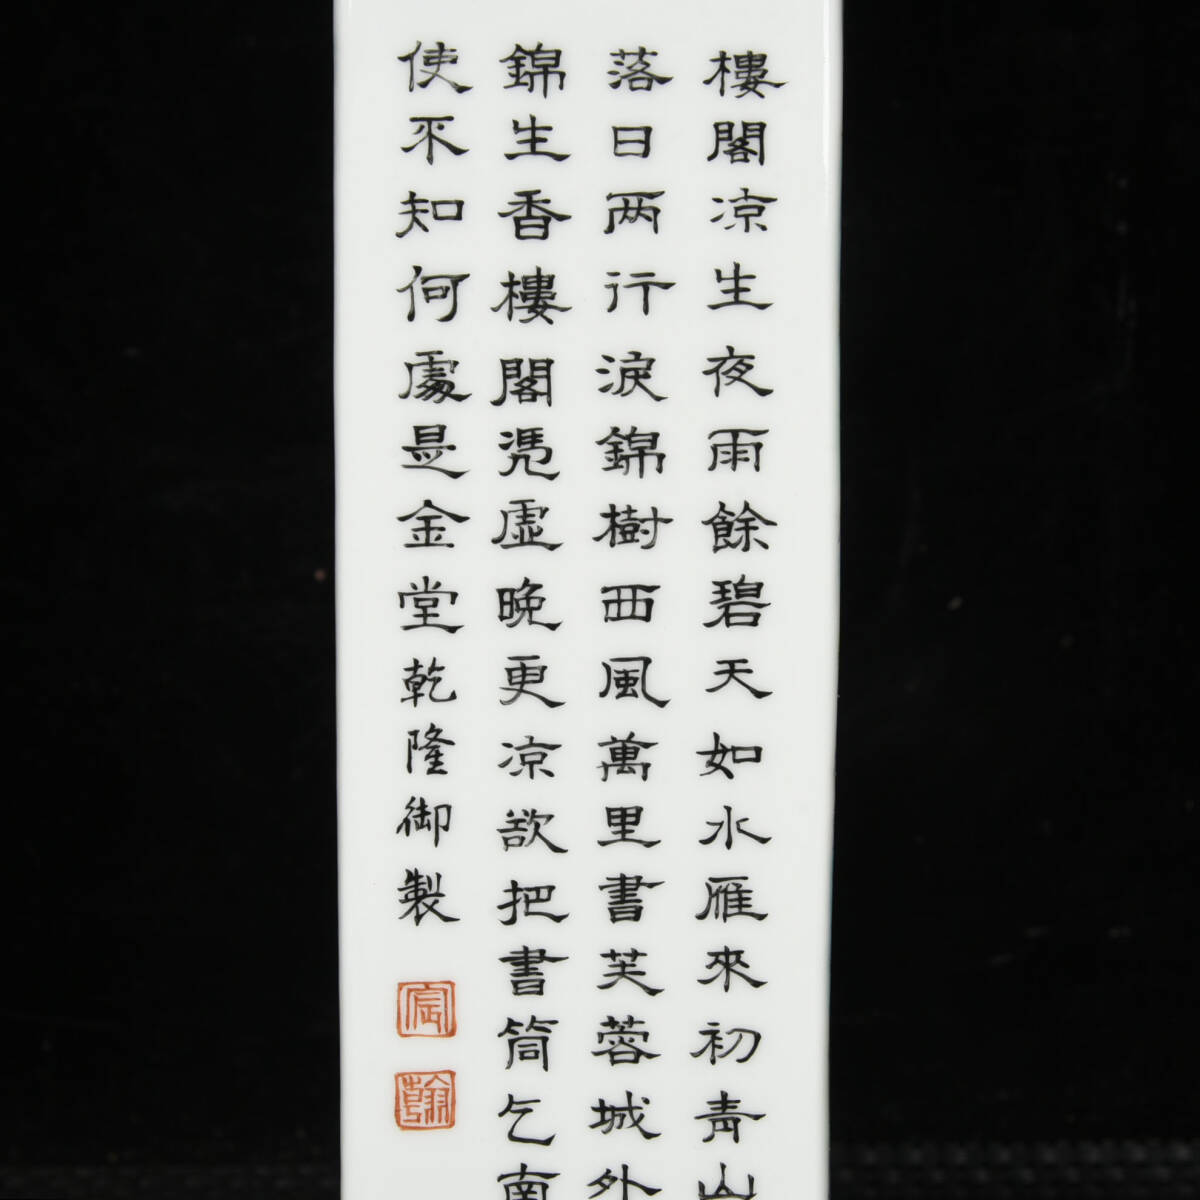 樓閣凉生夜雨餘碧天如水雁來初青山
落日两行淚錦樹西風萬里書芙蓉城外
錦生香樓閣凭虛晚更凉欲把書筒乞南
使不知何處是金堂乾隆御製
宸
翰